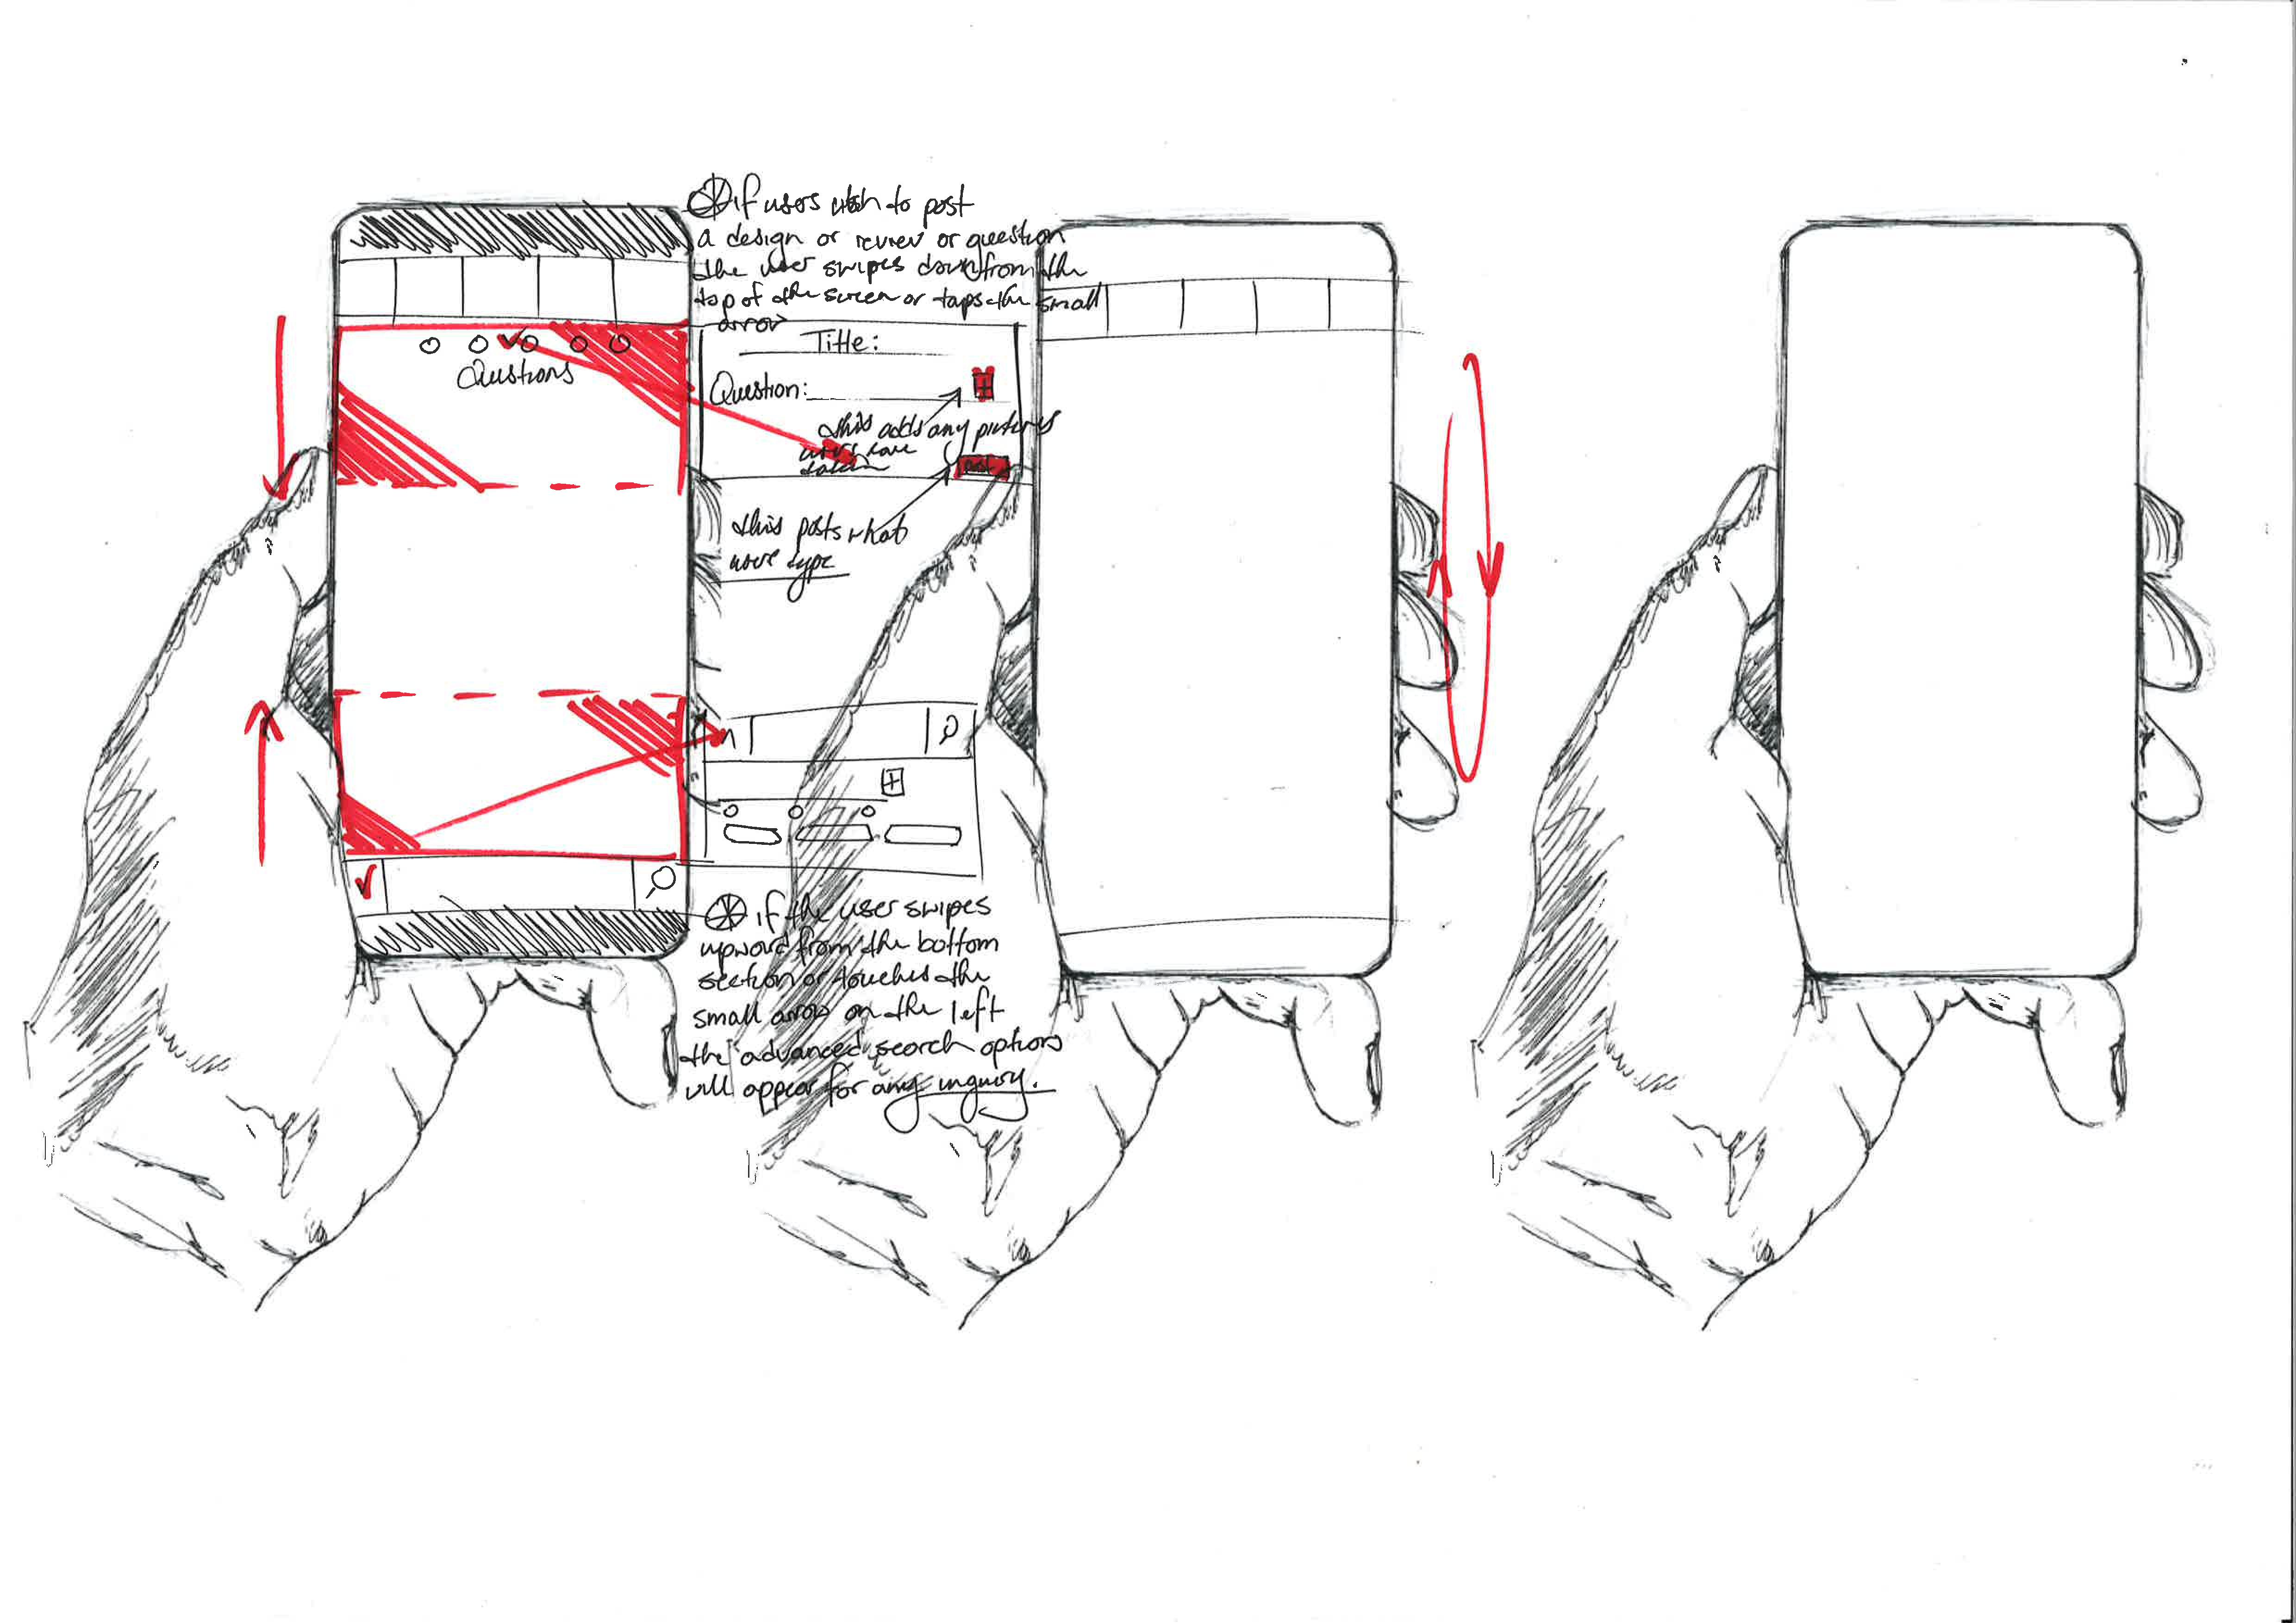 if users wish to post
a design or review or question
the user swipes down from the
top of the screen or taps the small
arrow
Title:
Questions
Question:
this adds any pictures
users have
taken
post
this posts what
users type
if the user swipes
upward from the bottom
section or touches the
small arrow on the left
the advanced search options
will appear for any inquiry.